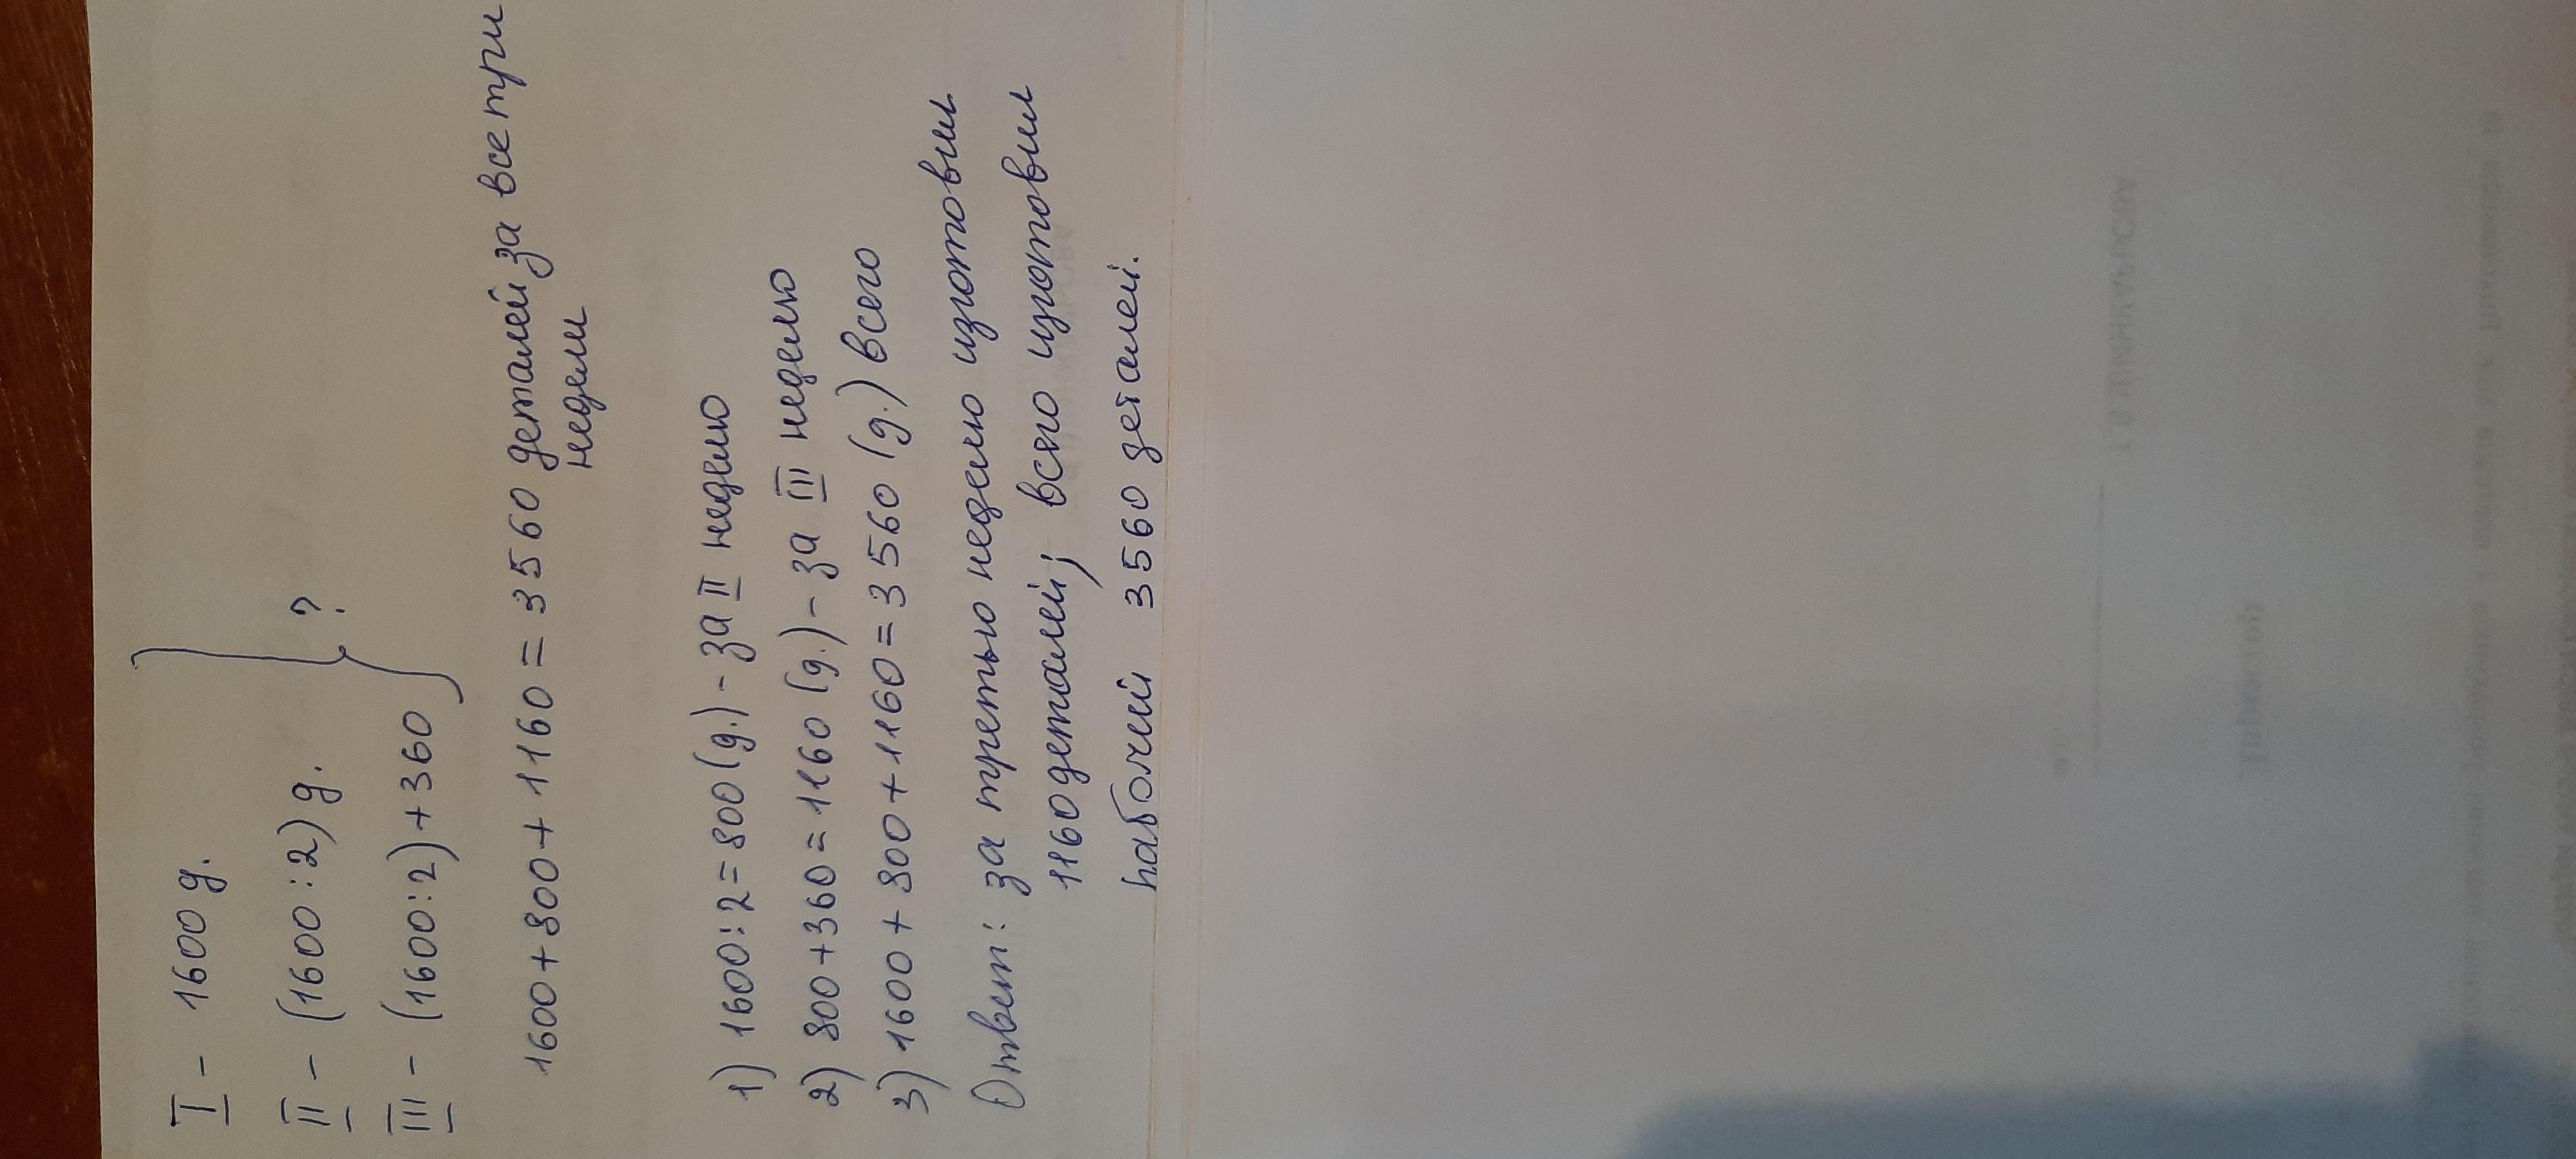 I - 1600 д.
II - (1600:2) д.
?
III - (1600:2)+360
1600+800+1160=3560 деталей за все три
недели
1) 1600:2=800(д.)-за II неделю
2) 800+360=1160 (д.)-за III неделю
3) 1600+800+1160=3560 (д.) всего
Ответ: за третью неделю изготовил
1160 деталей; всего изготовил
рабочий 3560 деталей.